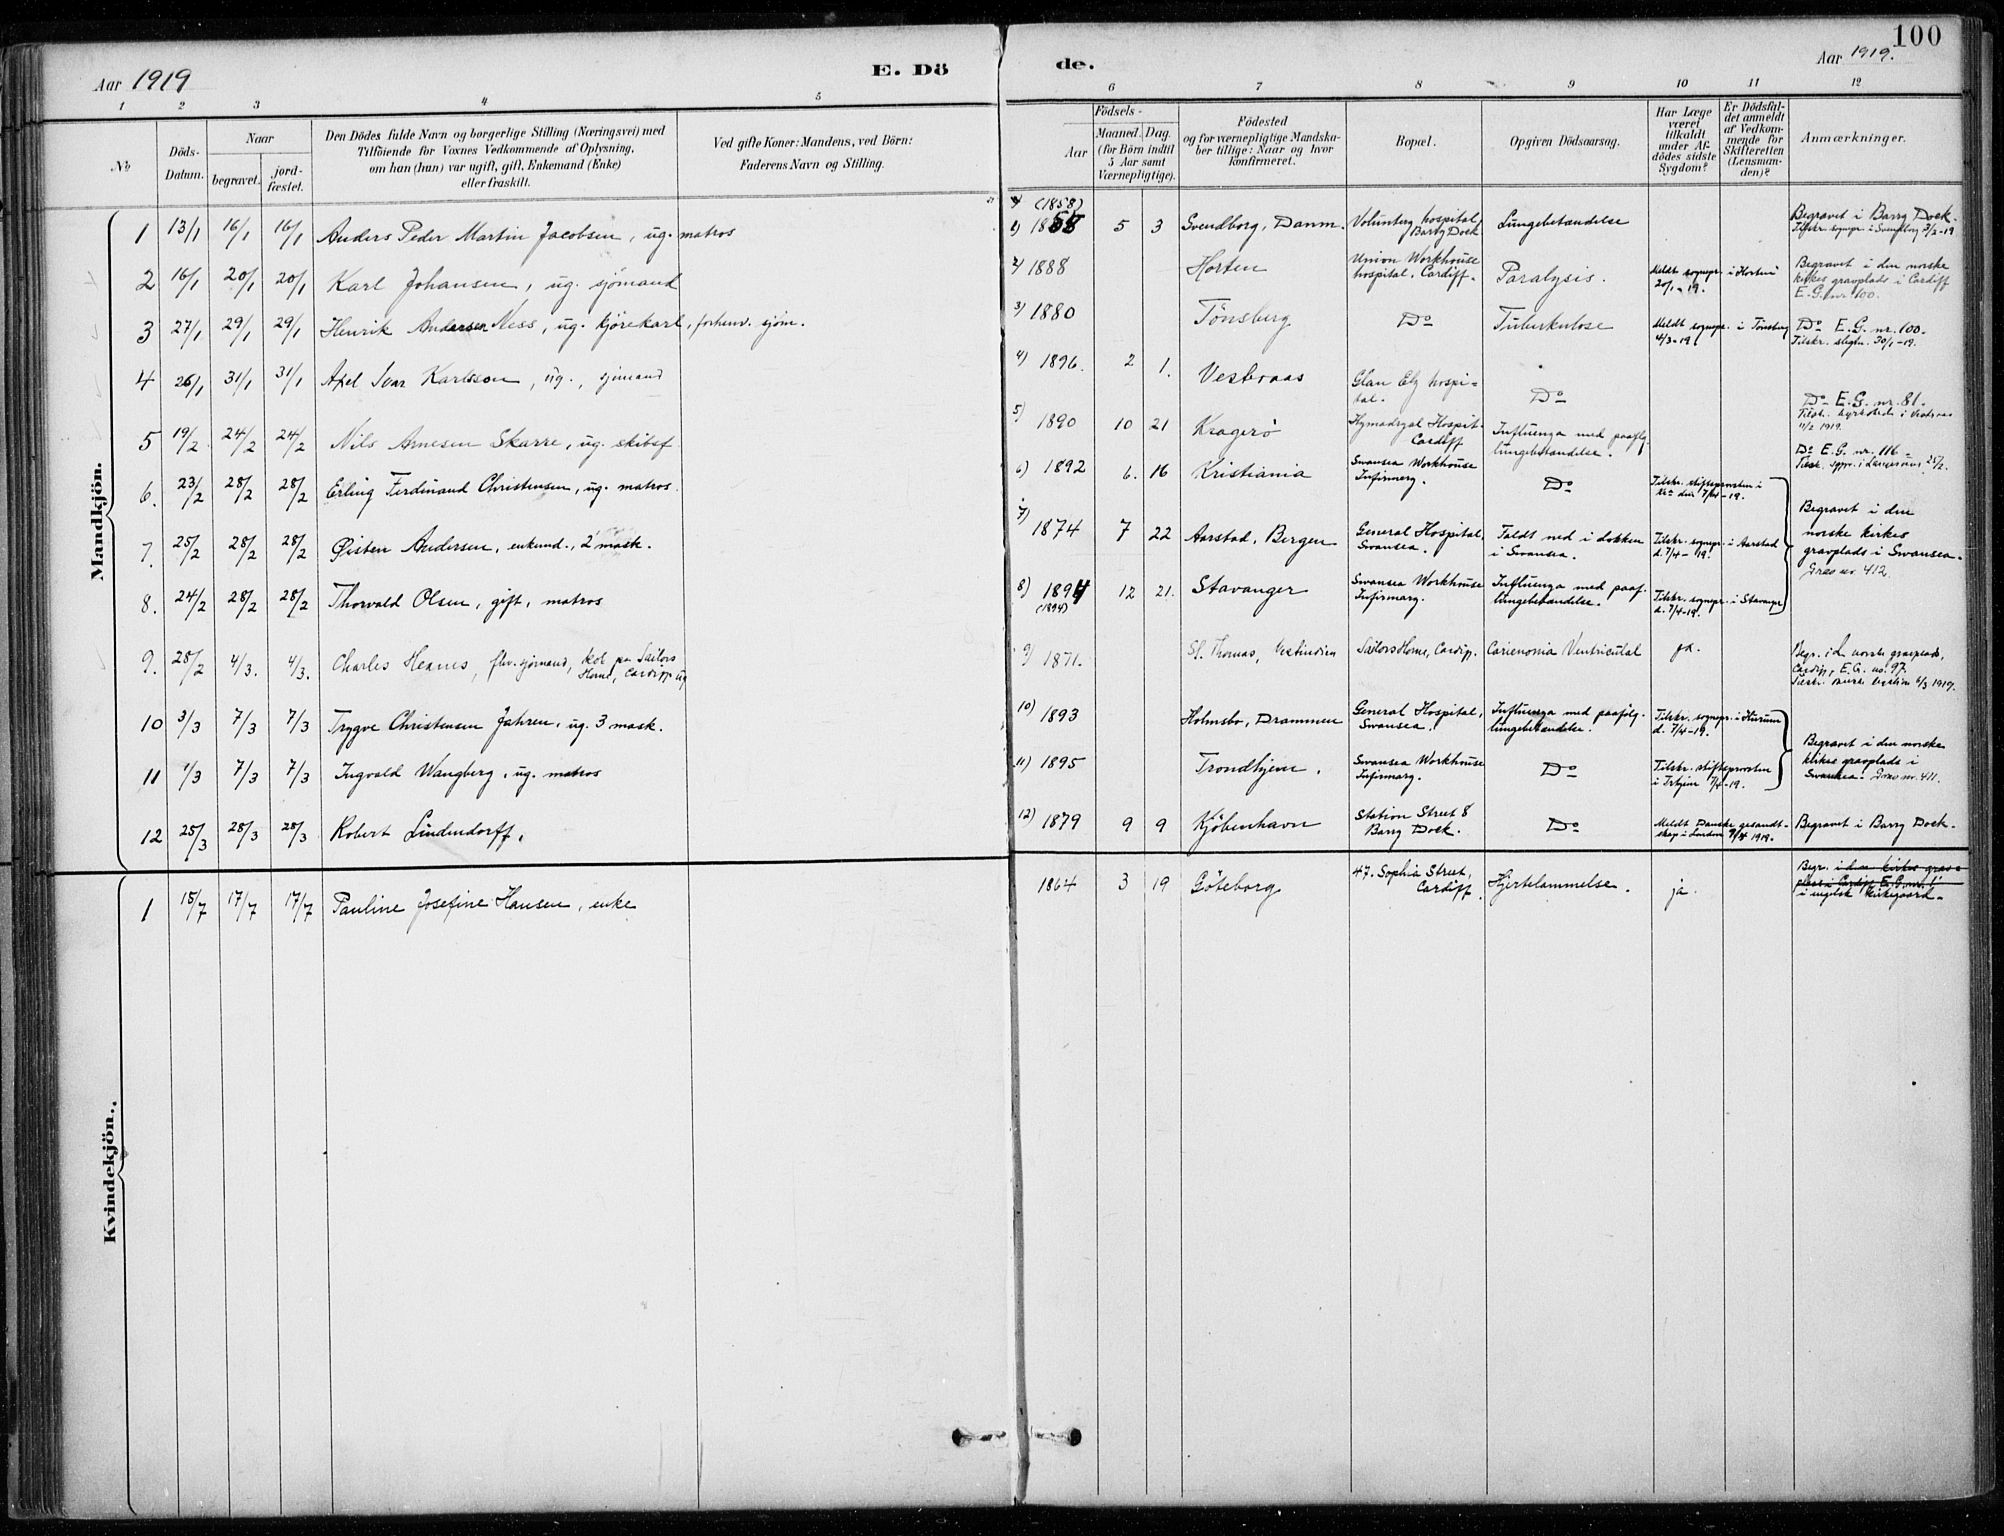 100
Aar 1919
E. Dö
de.
Aar 1919.
1 2 3 4 5 6 7 8 9 10 11 12
№
Döds-
Datum.
Naar
begravet.
jord-
fæstet.
Den Dödes fulde Navn og borgerlige Stilling (Næringsvei) med
Tilföiende for Voxnes Vedkommende af Oplysning,
om han (hun) var ugift, gift, Enkemand (Enke)
eller fraskilt.
Ved gifte Koner: Mandens, ved Börn:
Faderens Navn og Stilling.
Födsels-
Aar
Maaned. Dag.
(for Börn indtil
5 Aar samt
Værnepligtige).
Födested
og for værnepligtige Mandska-
ber tillige: Naar og hvor
konfirmeret.
Bopæl.
Opgiven Dödsaarsag.
Har Læge
været
tilkaldt
under Af-
dödes sidste
Sygdom?
Er Dödsfal-
det anmeldt
af Vedkom-
mende for
Skifteretten
(Lensman-
den)?
Anmærkninger.
Mandkjön.
1 13/1 16/1 16/1 Anders Peder Martin Jacobsen, ug. matros
(1858)
1) 1858 5 3 Svendborg, Danm. Voluntery hospital, Barry Dock Lungebetændelse
Begravet i Barry Dock.
Tilskr. sognepr. i Svendborg 3/2-19
2 16/1 20/1 20/1 Karl Johansen, ug. sjömand
2) 1888 Horten Union Workhouse hospital, Cardiff. Paralysis. Meldt sognepr. i Horten 20/1-19.
Begravet i den norske
kirkes gravplads i Cardiff
E.G. nr 100.
3 27/1 29/1 29/1 Henrik Andersen Ness, ug. kjörekarl, forhenv. sjöm.
3) 1880 Tönsberg Do Tuberkulose Meldt sognepr. i Tönsberg 4/3-19.
Do E.G. nr. 100.
Tilskr. slegtn. 30/1-19.
4 26/1 31/1 31/1 Axel Ivar Karlsson, ug., sjömand
4) 1896. 2 1. Vestraas Glan Ely hospi-
tal. Do
Do E.G. nr. 81.
11/2 1919.
5 19/2 24/2 24/2 Nils Arnesen Skarre, ug. skibsf
5) 1890 10 21 Kragerö Hospit. Cardiff Influenza med paaflg.
lungebetændelse.
Do E.G. nr. 116
25/2.
6. 23/2 28/2 28/2 Erling Ferdinand Christensen, ug. matros.
6) 1892 6. 16 Kristiania Swansea Workhouse
Infirmery. Do Tilskr. stiftsprovsten i
Kra den 7/4-19.
7. 25/2 28/2 28/2 Øisten Andersen, enkemd., 2 mask.
7) 1874 7 22 Aarstad, Bergen General Hospital,
Swansea. Faldt ned i dokken
i Swansea. Tilskr. sognepr. i Aarstad
d. 7/4-19.
Begravet i den
norske kirkes
gravplads i Swansea.
Grav nr. 412.
8. 24/2 28/2 28/2 Thorvald Olsen, gift, matros
8) 1894
(1894) 12 21. Stavanger Swansea Workhouse
Infirmary. Influenza med paaf.
lungebetændelse. Tilskr. sognepr. i Stavanger
d. 7/4-19.
9. 28/2 4/3. 4/3. Charles Heanes, fhv. sjömand, kok paa Sailors
Home, Cardiff ug
9) 1871. St. Thomas, Vestindien Sailors Home, Cardiff. Carienomia Ventriculal ja.
Begr. i d. norske gravplads,
Cardiff, E.G. no. 97.
6/3 1919.
10 3/3 7/3 7/3 Trygve Christensen Jahren, ug. 3 mask.
10) 1893 Holmsbo, Drammen General Hospital,
Swansea. Influenza med paafölg.
lungebetændelse. Tilskr. sognepr. i Hurum
d. 7/4-19.
11 1/3 7/3 7/3 Ingvald Wangberg, ug. matros
11) 1895 Trondhjem. Swansea Workhouse
Infirmary. Do Tilskr. stiftsprovsten
i Trhjem 7/4-19.
Begravet i den norske
kirkes gravplads i
Swansea. Grav nr. 411.
12 25/3 28/3 28/3 Robert Lindendorff.
12) 1879 9 9 Kjöbenhavn Station Street 8
Barry Dock. Do Meldt Danske gesandt-
skap i London 9/4 1919. Begravet i Barry Dock.
Kvindekjön.
1 15/7 17/7 17/7 Pauline Josefine Hansen, enke
1864 3 19 Göteborg 47. Sophia Street,
Cardiff. Hjertelammelse. ja.
Begr. i den kirkes grav-
plass i Cardiff E.G. nr. 1
i engelsk kirkegaard.